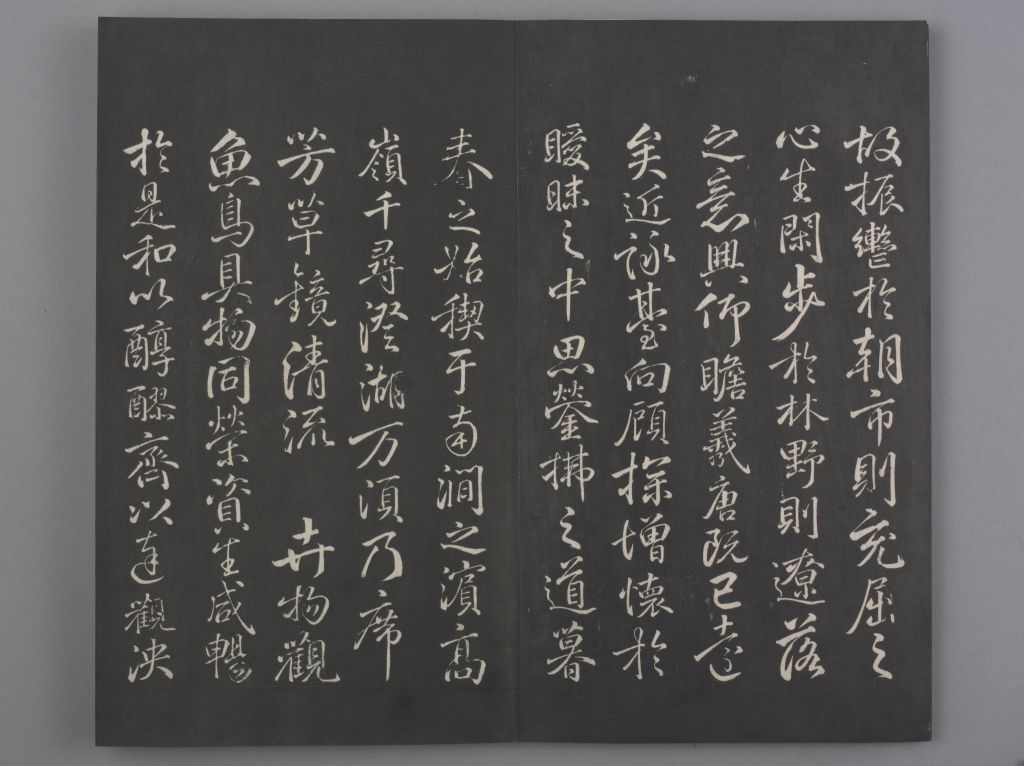 故振轡於朝市則充屈之
心生閑步於林野則遼落
之意興仰瞻羲唐既已遠
矣近詠臺向顧探增懷於
曖昧之中思鎣拂之道暮
春之始禊于南澗之濱高
嶺千尋澄湖万頃乃席
芳草鏡清流 卉物觀
魚鳥具物同榮資生咸暢
於是和以醇醪齊以達觀泱